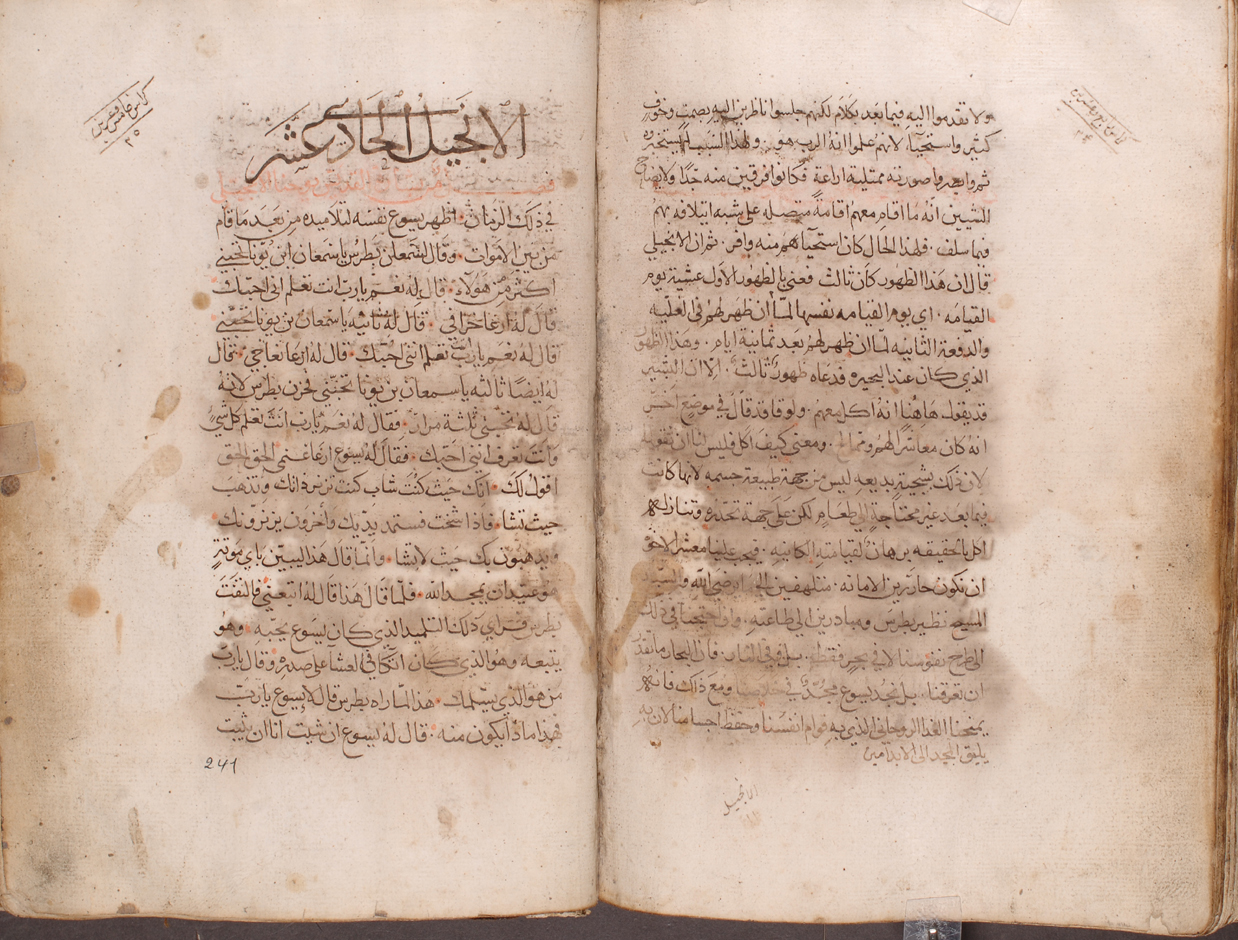 ولا تقدموا اليه فيما بعد بكلام لكنهم جلسوا ناظرين اليه بصمت وخوف
كثير واستحياء لانهم علموا انه الرب هو ولهذا السبب لم يستخبروه
ثم وابصروا صورته ممتلية اراعة فكانوا فرقين منه جدا ولايضاح
التبيين انه ما اقام معهم اقامة متصله على شبه ايتلافه بهم
فيما سلف فلهذا الحال كان استحياهم منه وافر ثم ان الانجيلي
قال ان هذا الظهور كان ثالث فعنى بالظهور الاول عشية يوم
القيامه اي يوم القيامه نفسها لما ان ظهر لهم في العليه
والدفعة الثانيه لما ان ظهر لهم بعد ثمانية ايام وهذا الظهور
الذي كان عند البحيره قد دعاه ظهور ثالث الا ان البشير
قد يقول هاهنا انه اكل معهم ولوقا قد قال في موضع اخر
انه كان معاشرا لهم ومعنى كيف اكل فليس لنا ان نقوله
لان ذلك بسجية بديعه ليس من جهة طبيعة جسمه لانها كانت
فيما بعد غير محتاجة الى طعام لكن على جهة تحدره وتنازله
اكل بالحقيقه برهان لقيامته الكاينه فيجب علينا معشر الاخوه
ان نكون حارين الامانه متلهفين الى ارضى الله والسيد
المسيح نظير بطرس ومبادرين الى طاعته وان احتجنا في ذلك
الى طرح نفوسنا لا في بحر فقط بل وفي النار فان البحار ما تقدر
ان تغرقنا بل نجد يسوع مجدا في خلاصنا ومع ذلك فانه
يمنحنا الغدا الروحاني الذي به قوام انفسنا وحفظ اجسامنا لان به
يليق المجد الى الابد امين
الانجيل
الانجيل الحادي عشر
في ذلك الزمان اظهر يسوع نفسه لتلاميذه من بعد ما قام
من بين الاموات وقال لشمعان بطرس يا شمعان ابن يونا اتحبني
اكثر من هولاء قال له نعم يارب انت تعلم اني احبك
قال له ارعا خرافي قال له ثانيه يا سمعان بن يونا تحبني
قال له نعم يارب تعلم انني احبك قال له ارعا نعاجي قال
له ايضا ثالثه يا سمعان بن يونا تحبني فحزن بطرس لانه
قال له تحبني ثلثة مرات فقال له نعم يارب انت تعلم كل شي
وانت تعرف انني احبك فقال له يسوع ارعا غنمي الحق الحق
اقول لك انك حيث كنت شاب كنت تزنر ذاتك وتذهب
حيث تشا فاذا شخت فستمد يديك واخرون يزنرونك
ويذهبون بك حيث لا تشا وانما قال هذا ليبين باي موتة
هو عتيد ان يمجد الله فلما قال هذا قال له اتبعني فالتفت
بطرس فراى ذلك التلميد الذي كان يسوع يحبه وهو
يتبعه وهو الذي كان اتكا في العشا على صدره وقال يارب
من هو الذي يسلمك هذا لما راه بطرس قال لايسوع يارب
فهذا ماذا يكون منه قال له يسوع ان شيت انا ان يثبت
241